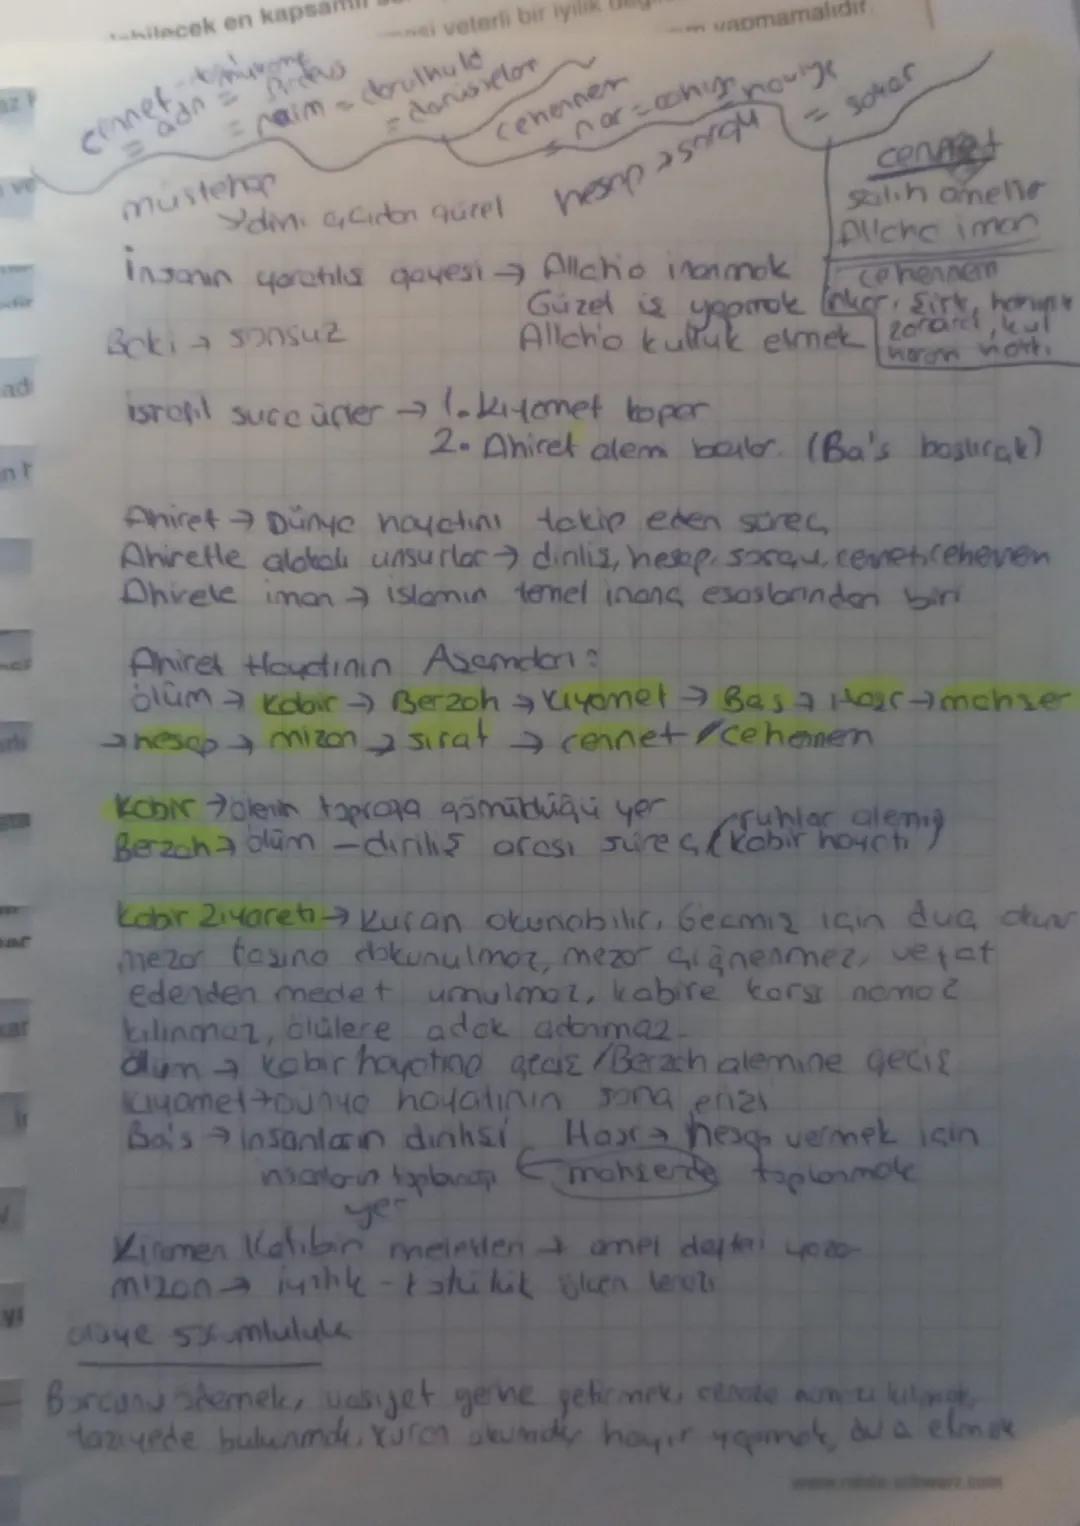 bilecek en kapsamlı
yeterli bir iyilik
yapmamalıdır.
cennet
= adn = firdevs
= naim = darulhuld
= darusselam
cehennem
= nar = cahim haviye
= sakar
hesap → sorgu
müstehap
↳ dini açıdan güzel
cennet
salih ameller
Allaha iman
cehennem
inkar, şirk,
zararlı, kul
haram hakkı
İnsanın yaratılış gayesi → Allah'a inanmak
Güzel iş yapmak
Baki → sonsuz
Allah'a kulluk etmek
israfil sura üfler → 1. kıyamet kopar
2. Ahiret alemi başlar. (Ba's başlıcak)
Ahiret → Dünya hayatını takip eden süreç
Ahiretle alakalı unsurlar → diriliş, hesap, sorgu, cennet, cehennem
Ahirete iman → islamın temel inanç esaslarından biri
Ahiret Hayatının Aşamaları:
ölüm → kabir → Berzah → kıyamet → Bas → Haşr → mahşer
→ hesap → mizan → sırat → cennet / cehennem
Kabir → ölenin toprağa gömüldüğü yer
Berzah → ölüm - diriliş arası süreç (ruhlar alemi / kabir hayatı)
Kabir Ziyareti → Kuran okunabilir, Geçmiş için dua okunur
mezar taşına dokunulmaz, mezar çiğnenmez, vefat
edenden medet umulmaz, kabire karşı namaz
kılınmaz, ölülere adak adanmaz.
ölüm → kabir hayatına geçiş / Berzah alemine geçiş
kıyamet → Dünya hayatının sona erişi
Ba's → insanların dirilişi Haşr → hesap vermek için
insanların toplanacağı ← mahşerde toplanmak
yer
Kiramen Katibin melekleri → amel defteri yazar
mizan → iyilik - kötülük ölçen terazi
ölüye sorumluluk
Borcunu ödemek, vasiyet yerine getirmek, cenaze namazı kılmak,
taziyede bulunmak, kuran okumak, hayır yapmak, dua etmek